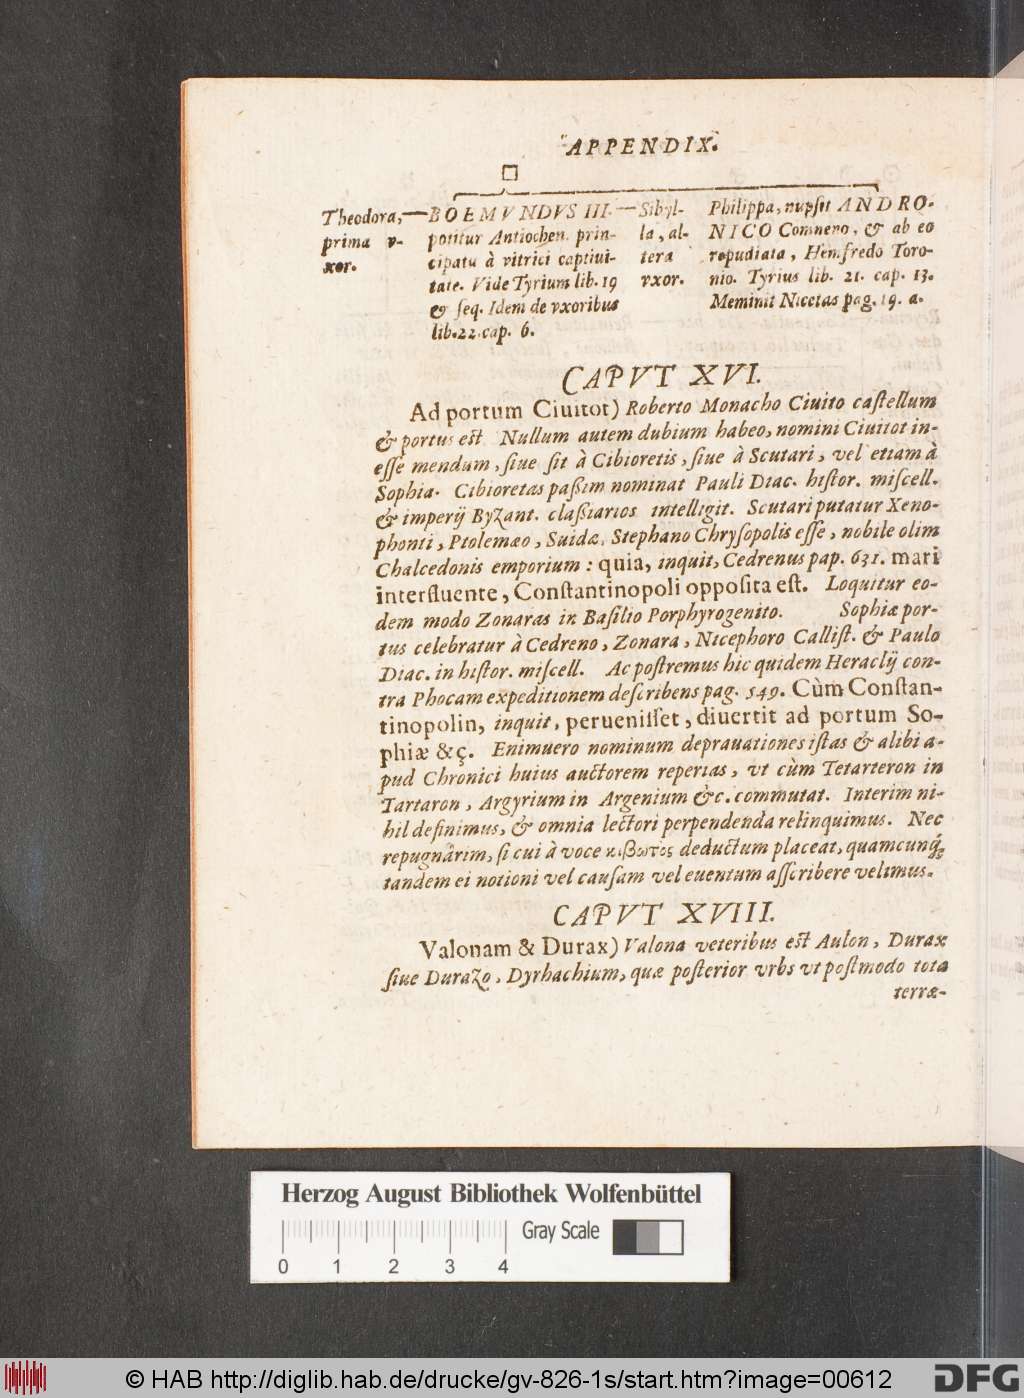 APPENDIX.
Theodora,
prima v-
xor.
BOEMVNDVS III.
potitur Antiochen. prin-
cipatu à vitrici captiui-
tate. Vide Tyrium lib. 19
& seq. Idem de vxoribus
lib. 22. cap. 6.
Sibyl-
la, al-
tera
vxor.
Philippa, nupsit ANDRO-
NICO Comneno, & ab eo
repudiata, Hemfredo Toro-
nio. Tyrius lib. 21. cap. 13.
Meminit Nicetas pag. 19. a.
CAPVT XVI.
Ad portum Ciuitot) Roberto Monacho Ciuito castellum
& portus est. Nullum autem dubium habeo, nomini Ciuitot in-
esse mendum, siue sit à Cibioretis, siue à Scutari, vel etiam à
Sophia. Cibioretas paßim nominat Pauli Diac. histor. miscell.
& imperij Byzant. claßiarios intelligit. Scutari putatur Xeno-
phonti, Ptolemæo, Suidæ, Stephano Chrysopolis esse, nobile olim
Chalcedonis emporium: quia, inquit, Cedrenus pap. 631. mari
interfluente, Constantinopoli opposita est. Loquitur eo-
dem modo Zonaras in Basilio Porphyrogenito. Sophiæ por-
tus celebratur à Cedreno, Zonara, Nicephoro Callist. & Paulo
Diac. in histor. miscell. Ac postremus hic quidem Heraclij con-
tra Phocam expeditionem describens pag. 549. Cùm Constan-
tinopolin, inquit, peruenisset, diuertit ad portum So-
phiæ &ç. Enimuero nominum deprauationes istas & alibi a-
pud Chronici huius auctorem reperias, vt cùm Tetarteron in
Tartaron, Argyrium in Argenium &c. commutat. Interim ni-
hil definimus, & omnia lectori perpendenda relinquimus. Nec
repugnârim, si cui à voce κιβωτος deductum placeat, quamcunq́;
tandem ei notioni vel causam vel euentum asscribere velimus.
CAPVT XVIII.
Valonam & Durax) Valona veteribus est Aulon, Durax
siue Durazo, Dyrhachium, quæ posterior vrbs vt postmodo tota
terræ-
Herzog August Bibliothek Wolfenbüttel
Gray Scale
0 1 2 3 4
© HAB http://diglib.hab.de/drucke/gv-826-1s/start.htm?image=00612
DFG